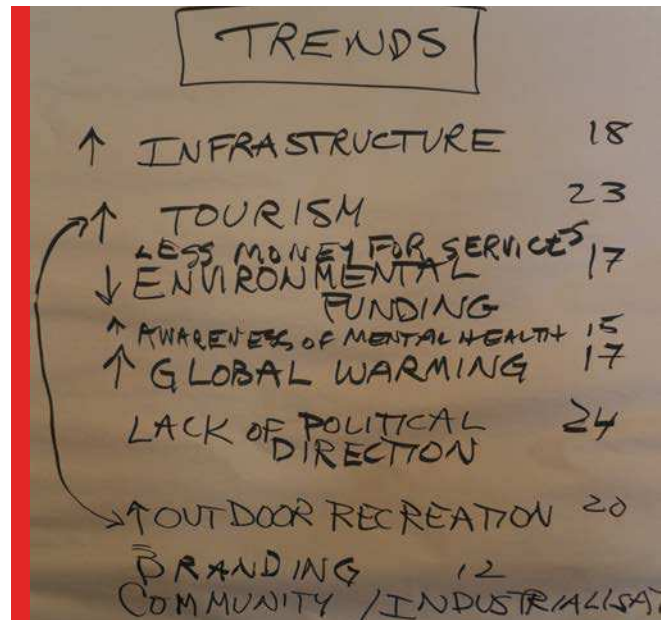 TRENDS
↑ INFRASTRUCTURE 18
↑ TOURISM 23
LESS MONEY FOR SERVICES
↓ ENVIRONMENTAL 17
FUNDING
↑ AWARENESS OF MENTAL HEALTH 15
↑ GLOBAL WARMING 17
LACK OF POLITICAL 24
DIRECTION
↑ OUTDOOR RECREATION 20
BRANDING 12
COMMUNITY / INDUSTRIALISAT